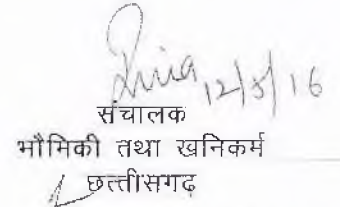 12/5/16
संचालक
भौमिकी तथा खनिकर्म
छत्तीसगढ़